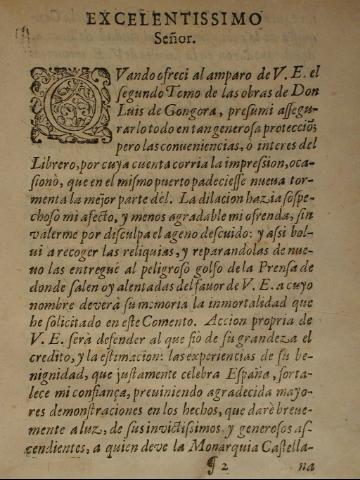 EXCELENTISSIMO
Señor.
QVando ofreci al amparo de V. E. el
segundo Tomo de las obras de Don
Luis de Gongora, presumi assegu-
rarlo todo en tan generosa proteccion;
pero las conveniencias, o interes del
Librero, por cuya cuenta corria la impression, oca-
sionò, que en el mismo puerto padeciesse nueva tor-
menta la mejor parte dèl. La dilacion hazia sospe-
choso mi afecto, y menos agradable mi ofrenda, sin
valerme por desculpa el ageno descuido: y assi bol-
ui a recoger las reliquias, y reparandolas de nue-
uo las entreguè al peligroso golfo de la Prensa de
donde salen oy alentadas del fauor de V. E. a cuyo
nombre deverà su memoria la inmortalidad que
he solicitado en este Comento. Accion propria de
V. E. serà defender al que fiò de su grandeza el
credito, y la estimacion: las experiencias de su be-
nignidad, que justamente celebra España, forta-
lece mi confiança, preuiniendo agradecida mayo-
res demonstraciones en los hechos, que darè breue-
mente a luz, de sus invictissimos y generosos as-
cendientes, a quien deve la Monarquia Castella-
¶ 2 na